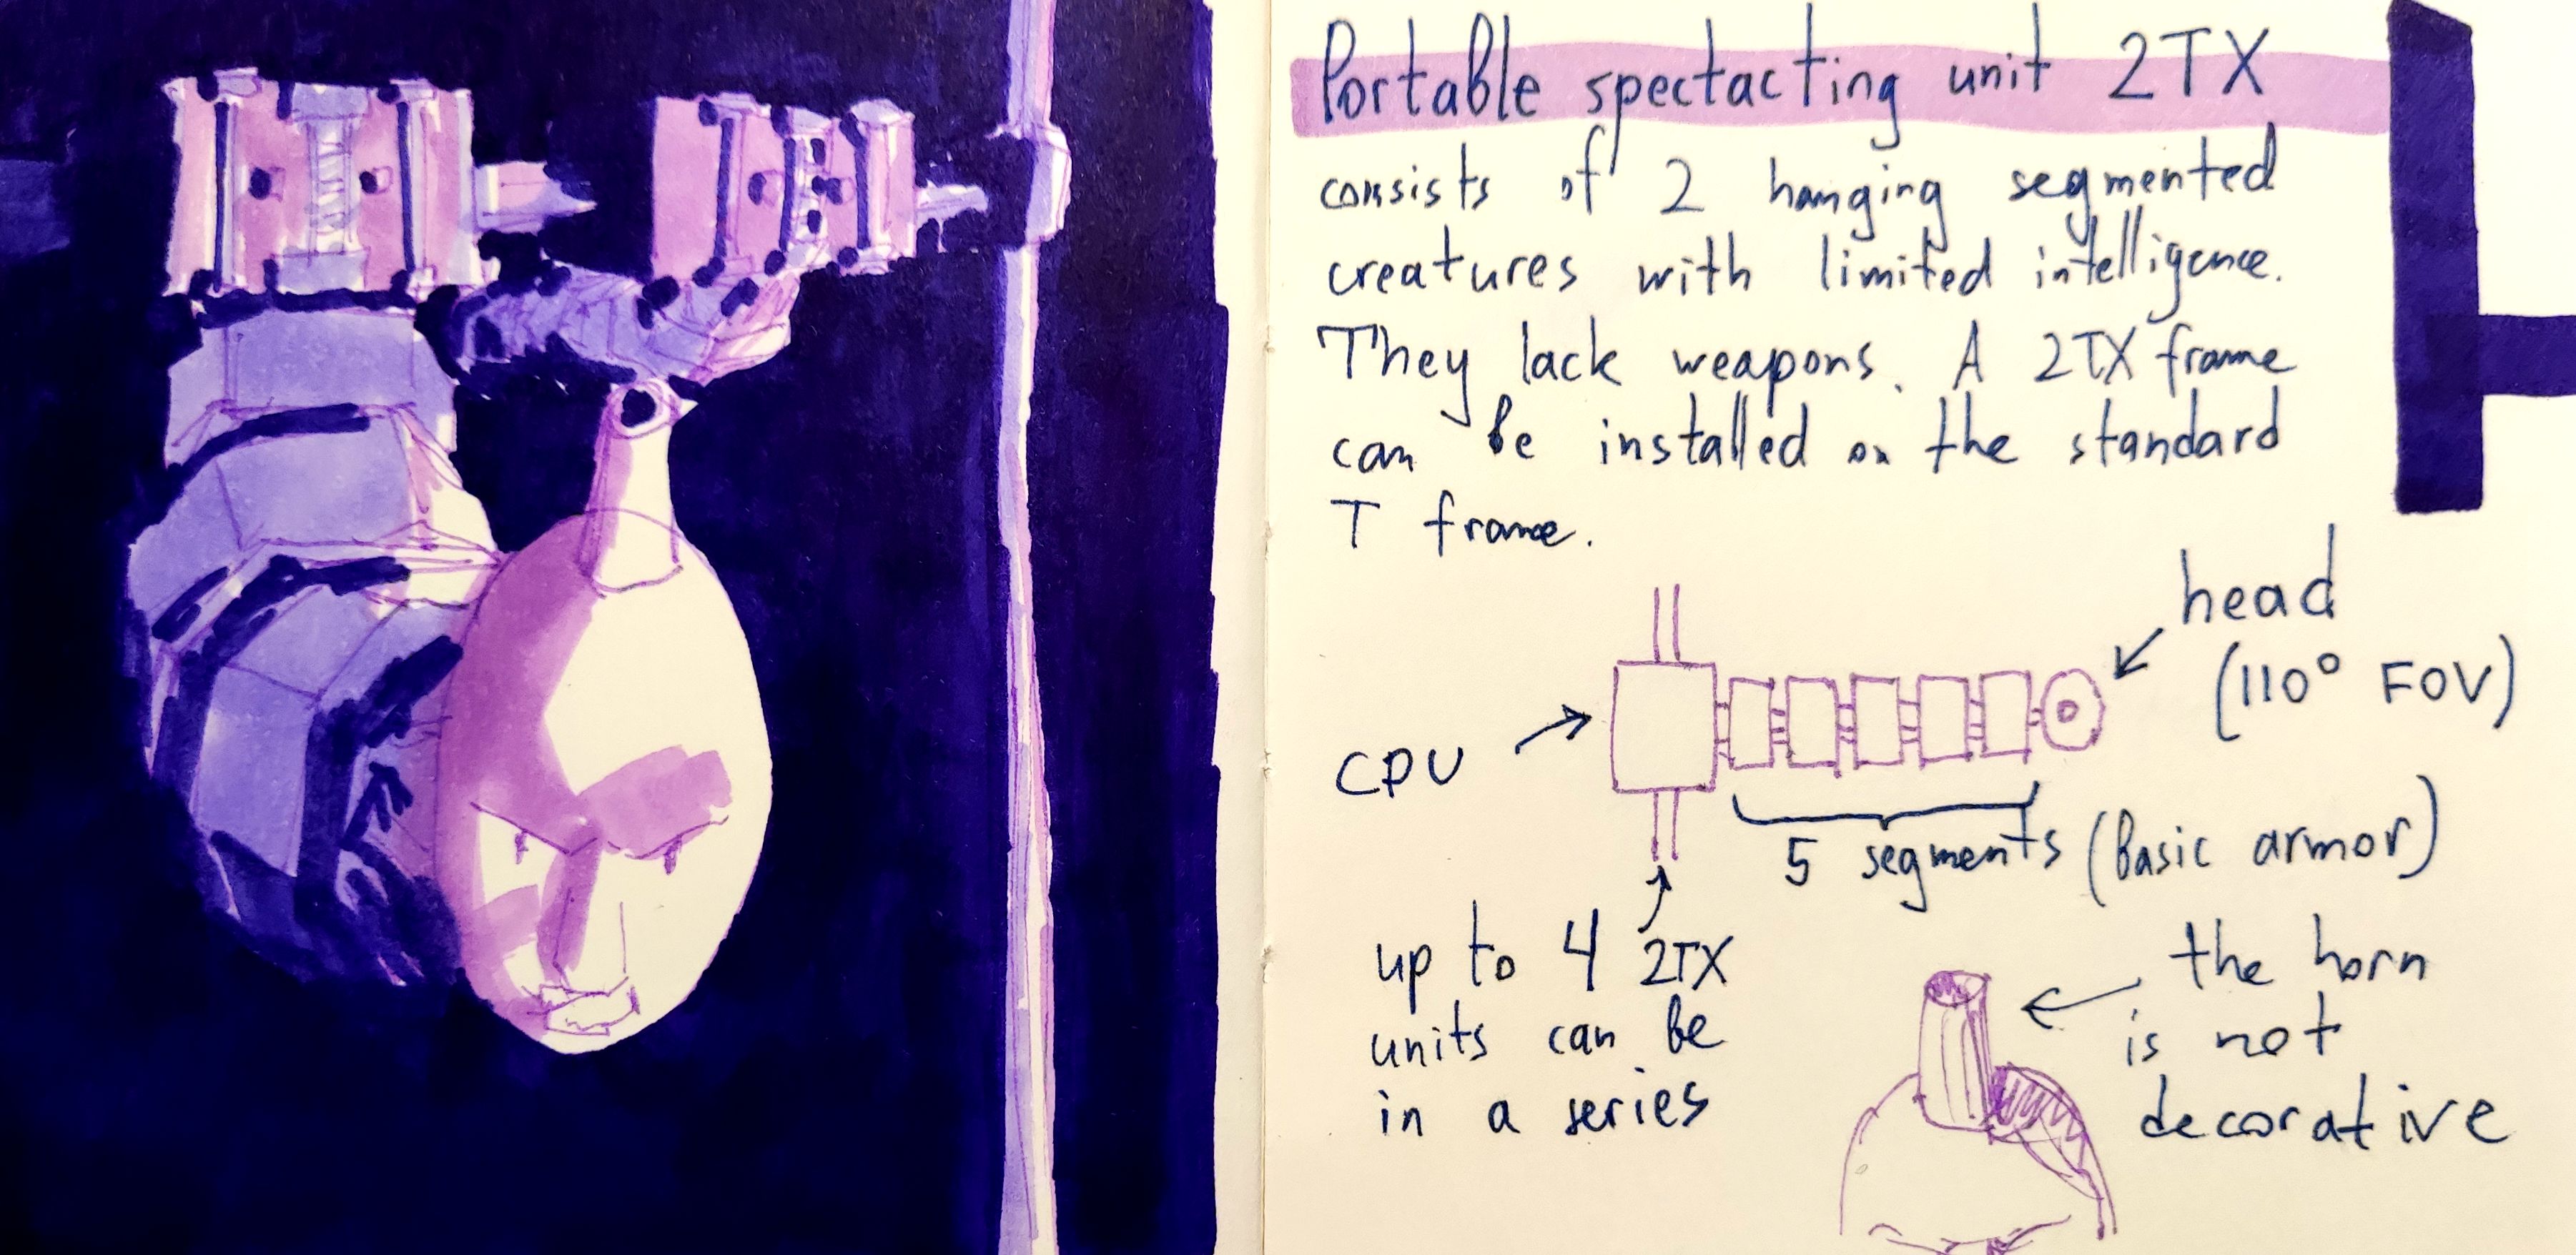 Portable spectacting unit 2TX
consists of 2 hanging segmented
creatures with limited intelligence.
They lack weapons. A 2TX frame
can be installed on the standard
T frame.
head
(110° FOV)
CPU
5 segments (Basic armor)
up to 4 2TX
units can be
in a series
the horn
is not
decorative